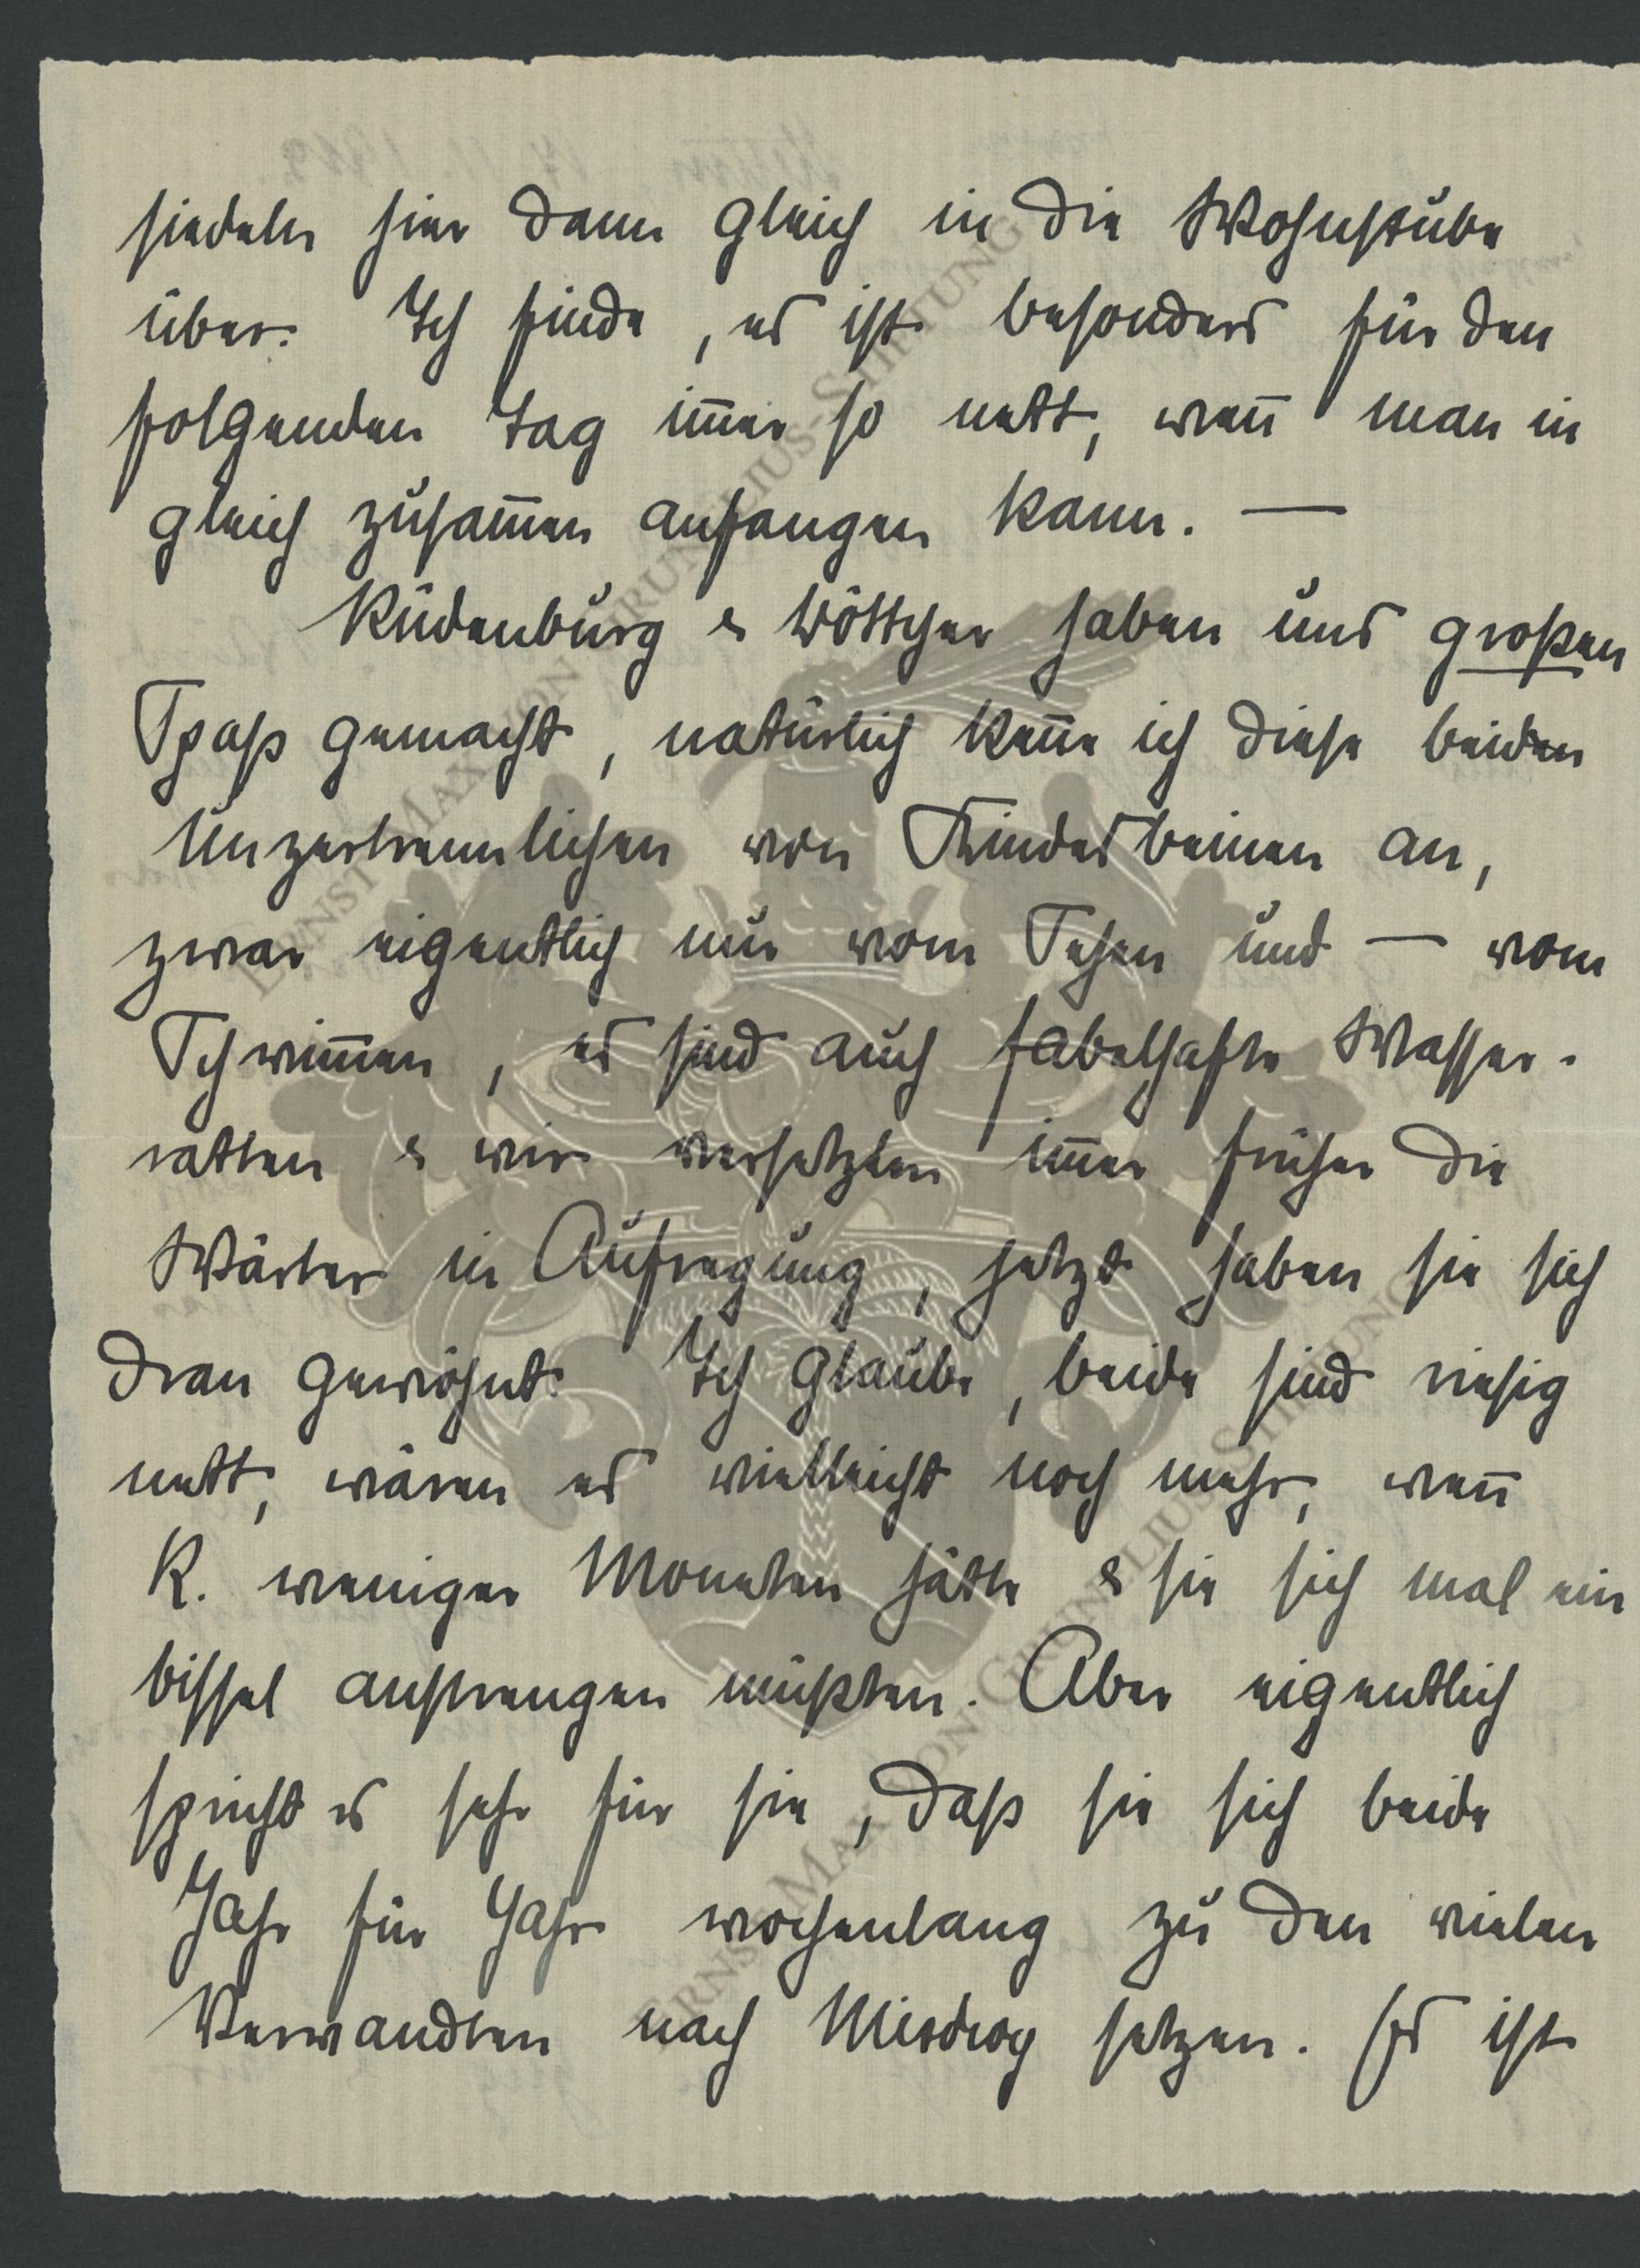 siedeln hier dann gleich in die Wohnstube
über. Ich finde, es ist besonders für den
folgenden Tag im̅er so nett, wen̅ man in
gleich zusam̅en anfangen kann. —
Küdenburg & Wöttcher haben uns großen
Spaß gemacht, natürlich ken̅e ich diese beiden
Unzertrennlichen von Kindesbeinen an,
zwar eigentlich nur vom Sehen und — vom
Schwim̅en, es sind auch fabelhafte Wasser-
ratten & wir versetzten im̅er früher die
Wärter in Aufregung, jetzt haben sie sich
dran gewöhnt. Ich glaube, beide sind riesig
nett, wären es vielleicht noch mehr, wen̅
K. weniger Moneten hätte & sie sich mal ein
bissel anstrengen müßten. Aber eigentlich
spricht es sehr für sie, daß sie sich beide
Jahr für Jahr wochenlang zu den vielen
Verwandten nach Misdroy setzen. Es ist
ERNST-MAX-VON-GRUNELIUS-STIFTUNG
ERNST-MAX-VON-GRUNELIUS-STIFTUNG